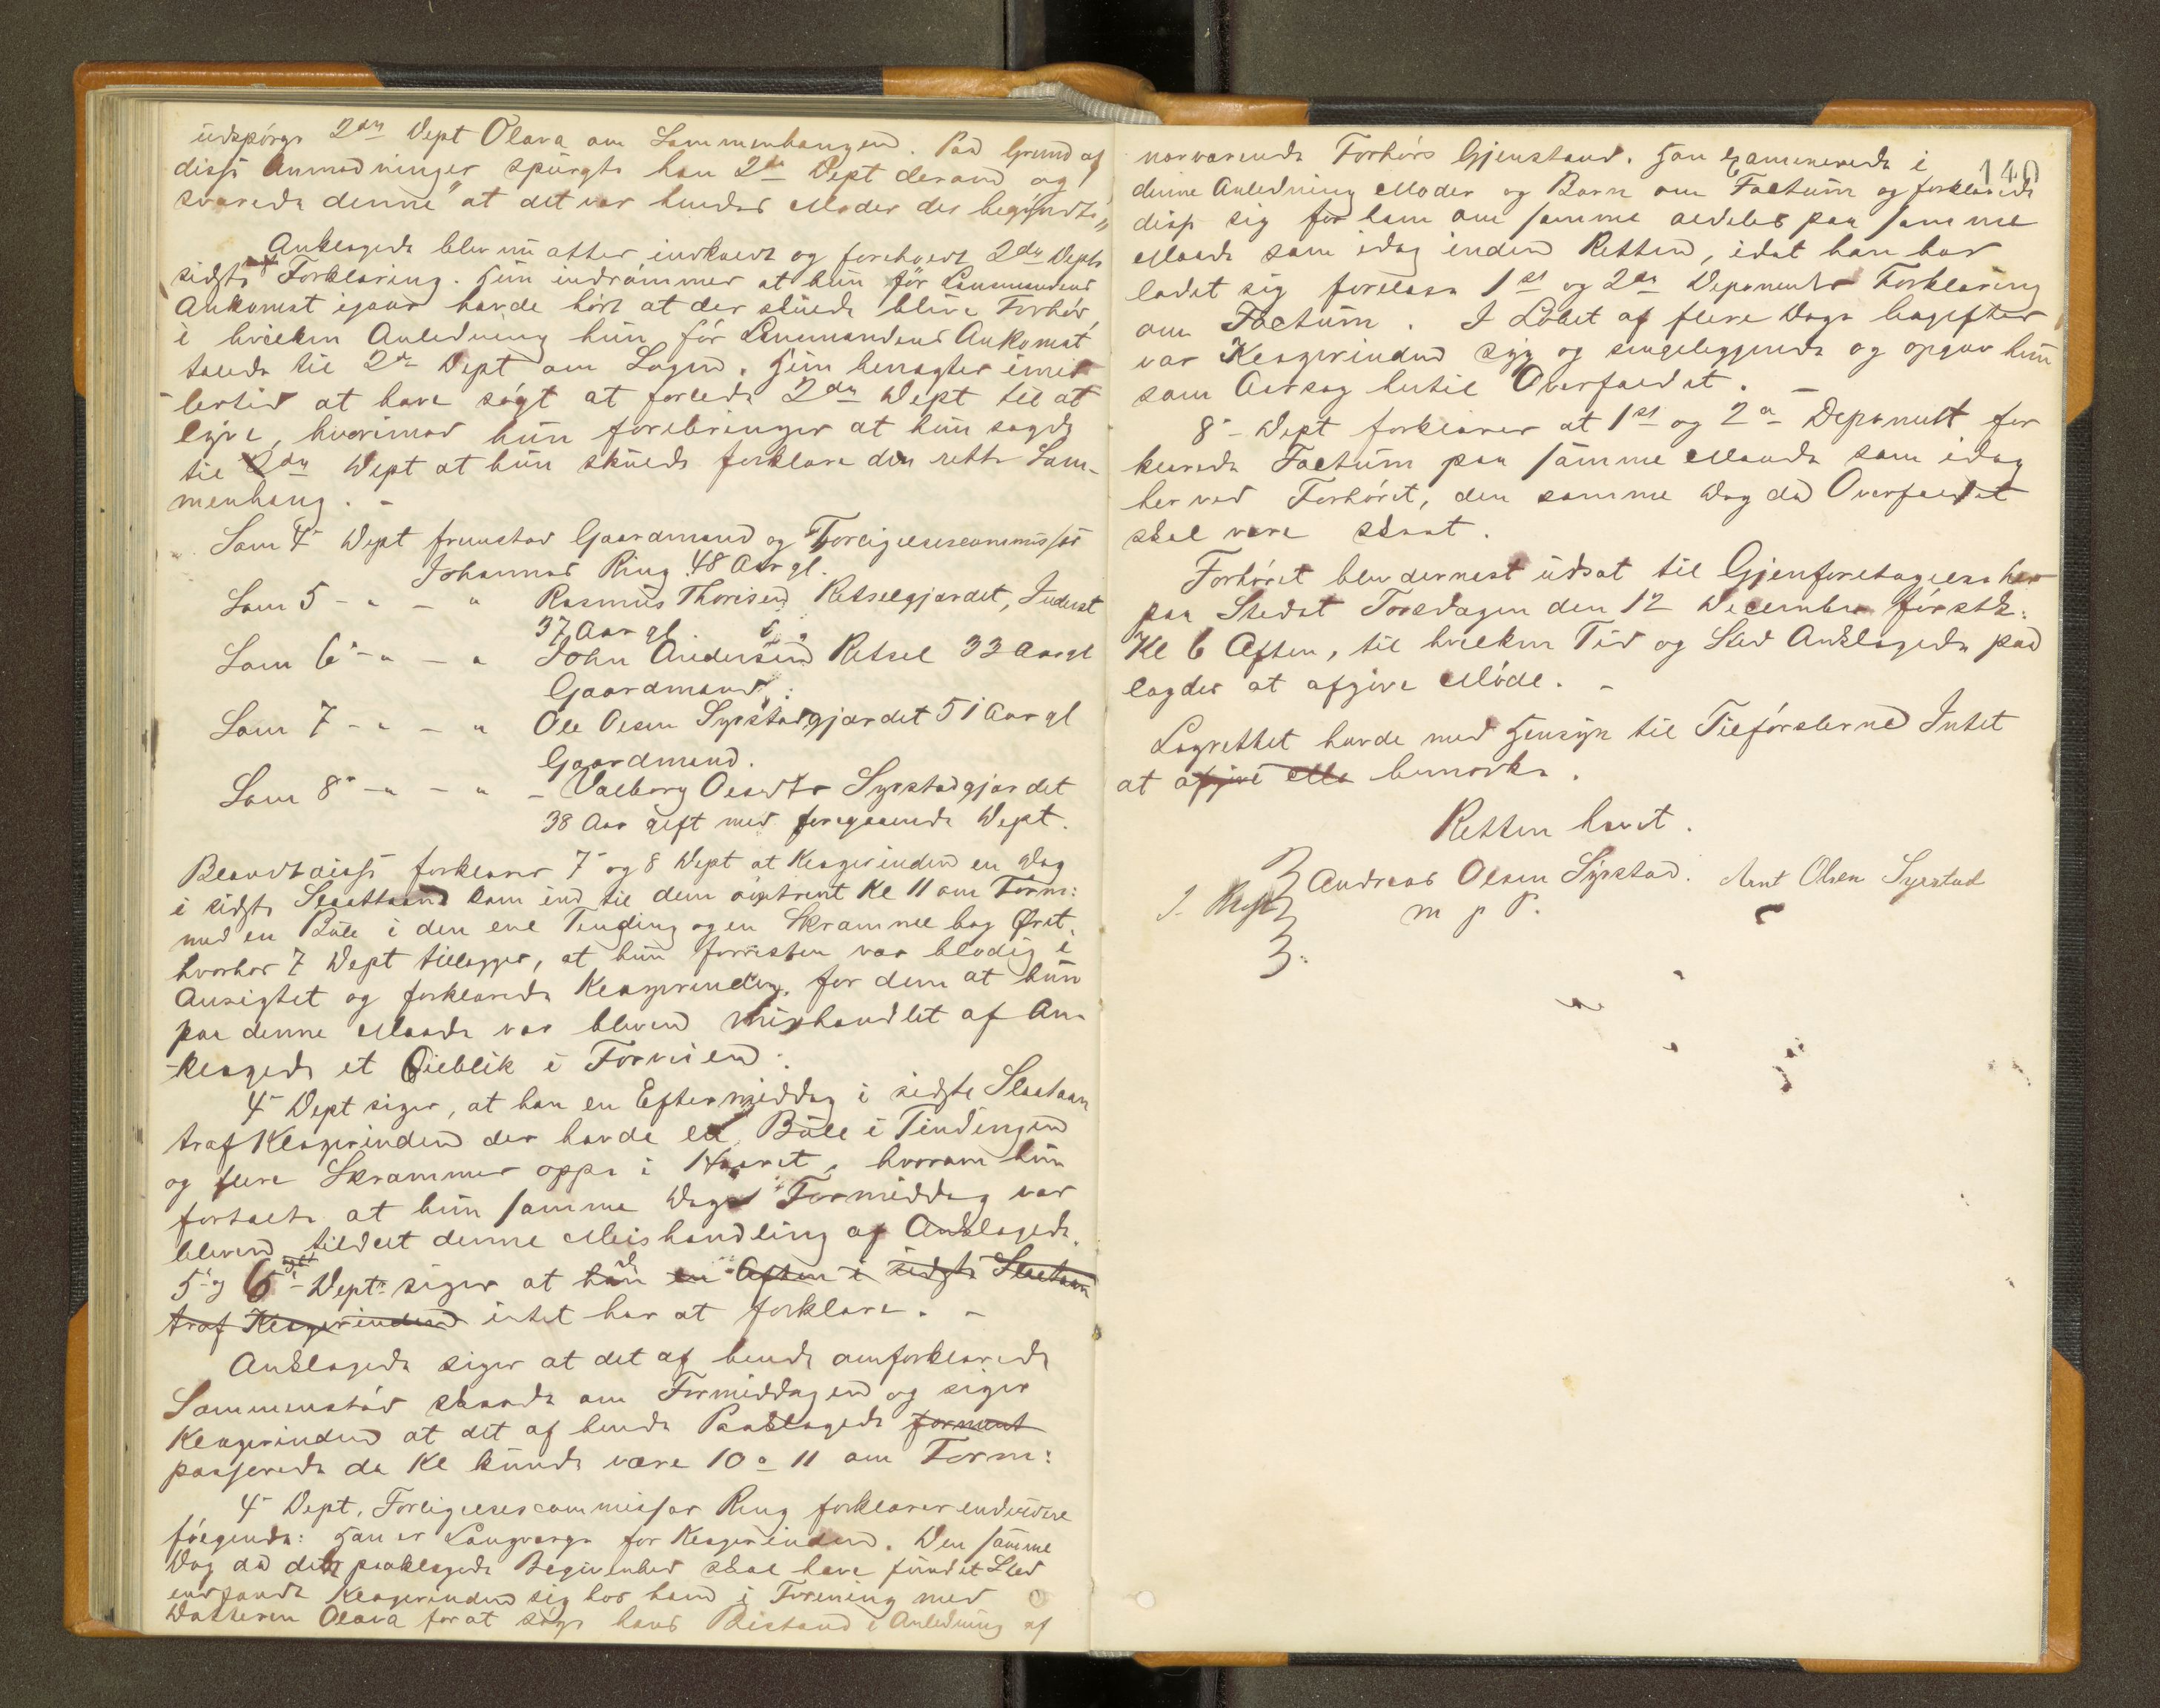 udspørge 2den Dept Olava om Sammenhangen. Paa Grund af
disse Anmodninger spurgte han 2de Dept derom og
svarede denne "at det var hendes Moder der begyndte"
Anklagede blev nu atter indkaldt og foreholdt 2den Depts
sidste Forklaring. Hun indrømmer at hun før Lensmandens
Ankomst igaar havde hørt at der skulde blive Forhør,
i hvilken Anledning hun før Lensmandens Ankomst
talede til 2de Dept om Sagen. Hun benægter imid-
lertid at have søgt at forlede 2den Dept til at
lyve, hvorimod hun forebringer at hun sagde
til 2den Dept at hun skulde forklare den rette Sam-
menhang. -
Som 4- Dept fremstod Gaardmand og Forligelsescommissær
Johannes Ring 48 Aar gl.
Som 5 - " - " Rasmus Thoresen Retselgjærdet, Inderst
37 Aar gl.
Som 6 - " - " John Andersen Retsel 33 Aar gl
Gaardmand.
Som 7 - " - " Ole Olsen Syrstadgjærdet 51 Aar gl
Gaardmand.
Som 8 - " - " - Valborg Olsdtr Syrstadgjærdet
38 Aar gift med foregaaende Dept.
Blandt disse forklarer 7- og 8 Dept at Klagerinden en Dag
i sidste Slaattaand kom ind til dem omtrent Kl 11 om Form:
med en Bule i den ene Tinding og en Skramme bag Øret,
hvorhos 7 Dept tillægger, at hun forresten var blodig i
Ansigtet og forklarede Klagerinden for dem at hun
paa denne Maade var bleven mishandlet af An-
klagede et Øieblik i Forveien.
4- Dept siger, at han en Eftermiddag i sidste Slaataan
traf Klagerinden der havde en Bule i Tindingen
og flere Skrammer oppe i Haaret, hvorom hun
fortalte at hun samme Dags Formiddag var
bleven tildelt denne Mishandling af Anklagede.
5- og 6- Dept siger at han en Aften i sidste Slaataan
traf Klagerinden intet har at forklare. -
Anklagede siger at det af hende omforklarede
Sammenstød skeede om Formiddagen og siger
Klagerinden at det af hende Paaklagede forment
passerede da Kl kunde være 10 a 11 om Form:
4- Dept, Forligelsescommissær Ring forklarer endvidere
følgende: Han er Laugværge for Klagerinden. Den samme
Dag da den paaklagede Begivenhed skal have fundet Sted
indfandt Klagerinden sig hos ham i Forening med
Datteren Olava for at søge hans Bistand i Anledning af
140
nærværende Forhørs Gjenstand. Han examinerede i
denne Anledning Moder og Barn om Factum og forklarede
disse sig for ham om samme aldeles paa samme
Maade som idag inden Retten, idet han har
ladet sig forelæse 1st og 2den Deponents Forklaring
om Factum. I Løbet af flere Dage bagefter
var Klagerinden syg og sengeliggende og opgav hun
som Aarsag hertil Overfaldet. -
8- Dept forklarer at 1st og 2n- Deponent for
klarede Factum paa samme Maade som idag
her ved Forhøret, den samme Dag da Overfaldet
skal være skeet.
Forhøret blev dernest udsat til Gjenforetagelse her
paa Stedet Torsdagen den 12 December førstk:
Kl 6 Aften, til hvilken Tid og Sted Anklagede paa
lagdes at afgive Møde. -
Lagrettet havde med Hensyn til Tilførslerne Intet
at afgive elle bemærke.
Retten hævet.
Andreas Olsen Syrstad. Arnt Olsen Syrstad
m p P.